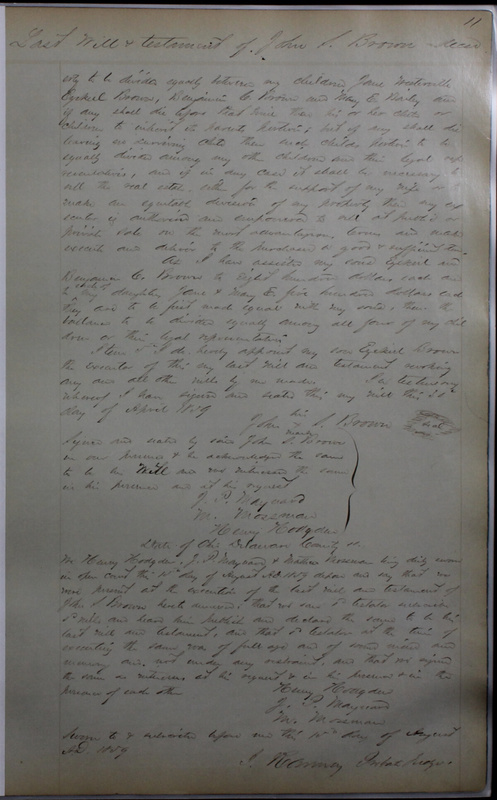 11
Last Will & testament of John S. Brown decd
erty to be divided equally between my children Jane
Ezekiel Brown, Benjamin C. Brown and Mary E. and
if any shall die before that time then his or her child or
children to inherit its parents portion, but if any shall die
leaving no surviving child then such childs portion to be
equally divided among my other children and their legal rep
resentatives, and if in any case it shall be necessary to
sell the real estate either for the support of my wife or
make an equitable division of my property then my ex
ecutor is authorized and empowered to sell at public or
private sale on the most advantageous terms and make
execute and deliver to the purchaser a good & sufficient
As I have assisted my sons Ezekiel and
Benjamin C. Brown to eight hundred dollars each and
to each of my daughters Jane & Mary E. five hundred dollars each
they are to be first made equal with my sons, then the
balance to be divided equally among all four of my chil
dren or their legal representatives
Item 5th I do hereby appoint my son Ezekiel Brown
the executor of this my last will and testament revoking
any and all other wills by me made. In testimony
whereof I have signed and sealed this my will this
day of April 1859
his
John S. Brown seal
mark
Signed and sealed by said John S. Brown
in our presence & he acknowledged the same
to be his Will and we witnessed the same
in his presence and at his request
J. P. Maynard
M. Mossman
Henry Hodgden
State of Ohio Delaware County ss.
We Henry Hodgden, J. P. Maynard & Mossman being duly sworn
in open court this 15th day of August AD. 1859 depose and say that we
were present at the execution of the last will and testament of
John S. Brown hereto annexed; that we saw sd testator
sd will, and heard him publish and declare the same to be his
last will and testament, and that sd testator at the time of
executing the same, was of full age and of sound mind and
memory and not under any restraint, and that we signed
the same as witnesses at his request & in his presence & in the
presence of each other
Henry Hodgden
J. P. Maynard
M. Mossman
Sworn to & subscribed before me this 15th day of August
AD. 1859
Probate Judge.